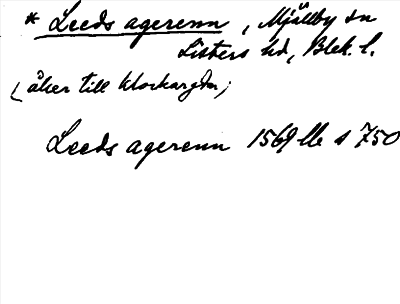 * Leeds agerenn, Mjällby sn
Listers hd, Blek. l.
(åker till klockargdn;
Leeds agerenn 1569 llb s 750